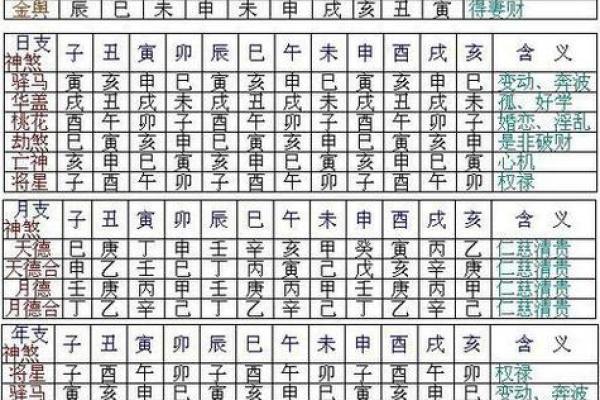 金舆 辰 巳 未 申 未 申 戌 亥 丑 寅 得妻财
日支
神煞 子 丑 寅 卯 辰 巳 午 未 申 酉 戌 亥 含 义
驿马 寅 亥 申 巳 寅 亥 申 巳 寅 亥 申 巳 变动、奔波
华盖 辰 丑 戌 未 辰 丑 戌 未 辰 丑 戌 未 孤、好学
桃花 酉 午 卯 子 酉 午 卯 子 酉 午 卯 子 婚恋、淫乱
劫煞 巳 寅 亥 申 巳 寅 亥 申 巳 寅 亥 申 是非破财
亡神 亥 申 巳 寅 亥 申 巳 寅 亥 申 巳 寅 心机
将星 子 酉 午 卯 子 酉 午 卯 子 酉 午 卯 权禄
月支
神煞 子 丑 寅 卯 辰 巳 午 未 申 酉 戌 亥 含 义
天德 巳 庚 丁 申 壬 辛 亥 甲 癸 寅 丙 乙 仁慈清贵
天德合 申 乙 壬 巳 丁 丙 寅 己 戊 亥 辛 庚 仁慈清贵
月德 壬 庚 丙 甲 壬 庚 丙 甲 壬 庚 丙 甲 仁慈清贵
月德合 丁 乙 辛 己 丁 乙 辛 己 丁 乙 辛 己 仁慈清贵
年支
神煞 子 丑 寅 卯 辰 巳 午 未 申 酉 戌 亥 含 义
将星 子 酉 午 卯 子 酉 午 卯 子 酉 午 卯 权禄
驿马 寅 亥 申 巳 寅 亥 申 巳 寅 亥 申 巳 变动、奔波